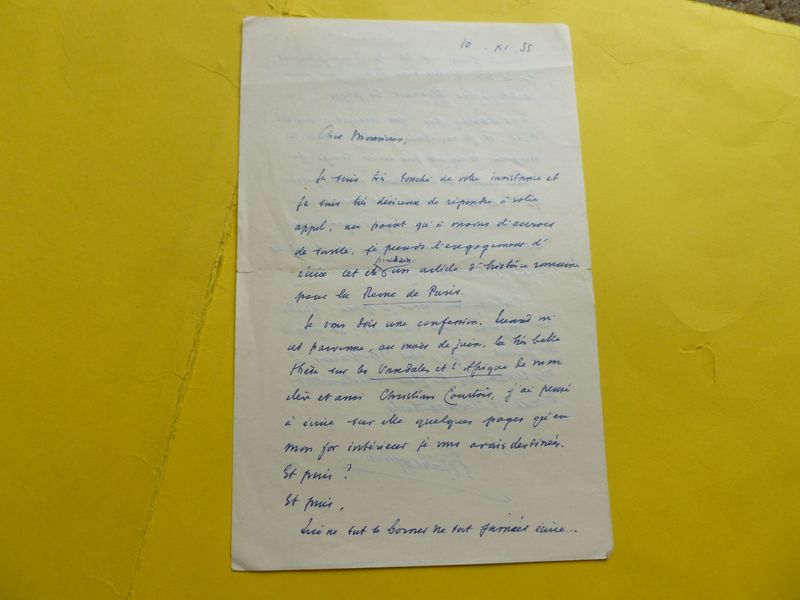 10 . XI 55
Cher Monsieur,
Je suis très touché de votre insistance et
je suis très désireux de répondre à votre
appel, au point qu'à moins d'accroc
de santé, je prends l'engagement d'
écrire cet été prochain un article d'histoire romaine
pour la Revue de Paris.
Je vous dois une confession. Quand m'
est parvenue, au mois de juin, la très belle
thèse sur les Vandales et l'Afrique de mon
élève et ami Christian Courtois, j'ai pensé
à écrire sur elle quelques pages qu'en
mon for intérieur je vous avais destinées.
Et puis ?
Et puis,
Qui ne sut se borner ne sut jamais écrire...